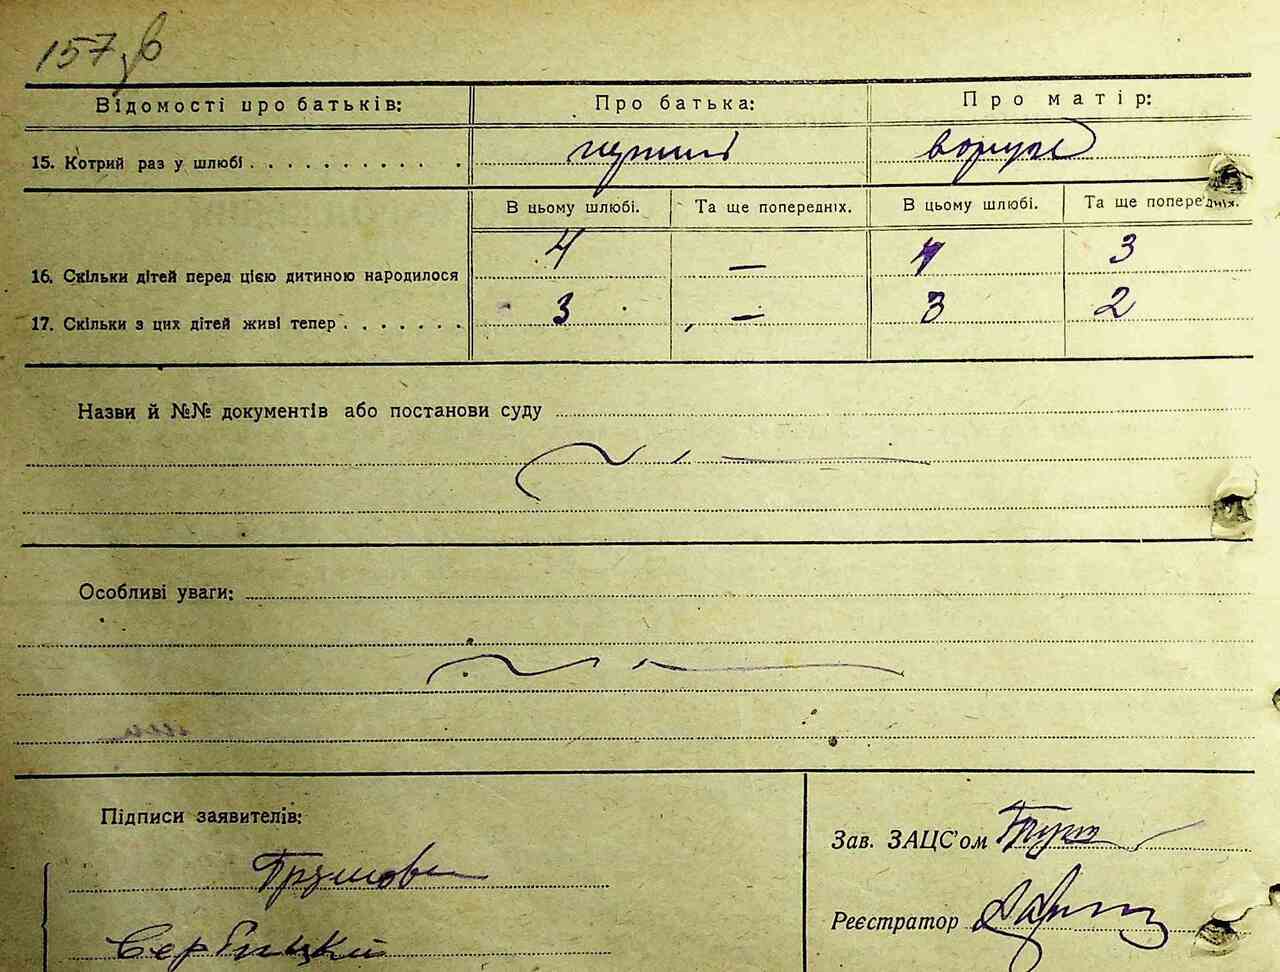 157 зв
Відомості про батьків: Про батька: Про матір:
15. Котрий раз у шлюбі . . . . . . . . . . . перший вдруге
В цьому шлюбі. Та ще попередніх. В цьому шлюбі. Та ще попередніх.
16. Скільки дітей перед цією дитиною народилося 4 — 4 3
17. Скільки з цих дітей живі тепер . . . . . . . 3 — 3 2
Назви й №№ документів або постанови суду
Особливі уваги:
Підписи заявителів:
Зав. ЗАЦС'ом
Реєстратор